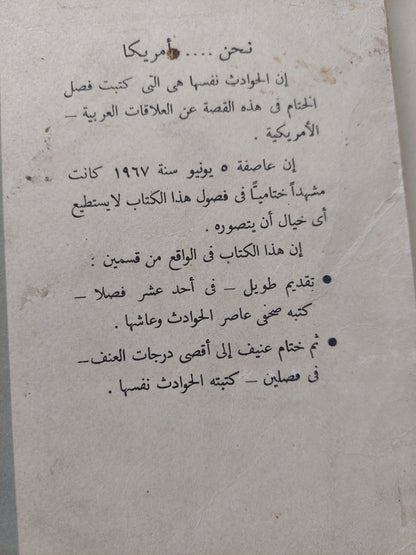 نحن .... وأمريكا
إن الحوادث نفسها هى التى كتبت فصل
الختام فى هذه القصة عن العلاقات العربية –
الأمريكية .
إن عاصفة ٥ يونيو سنة ١٩٦٧ كانت
مشهداً ختاميًّا فى فصول هذا الكتاب لايستطيع
أى خيال أن يتصوره .
إن هذا الكتاب فى الواقع من قسمين :
● تقديم طويل – فى أحد عشر فصلا –
كتبه صحفى عاصر الحوادث وعاشها .
● ثم ختام عنيف إلى أقصى درجات العنف –
فى فصلين – كتبته الحوادث نفسها .